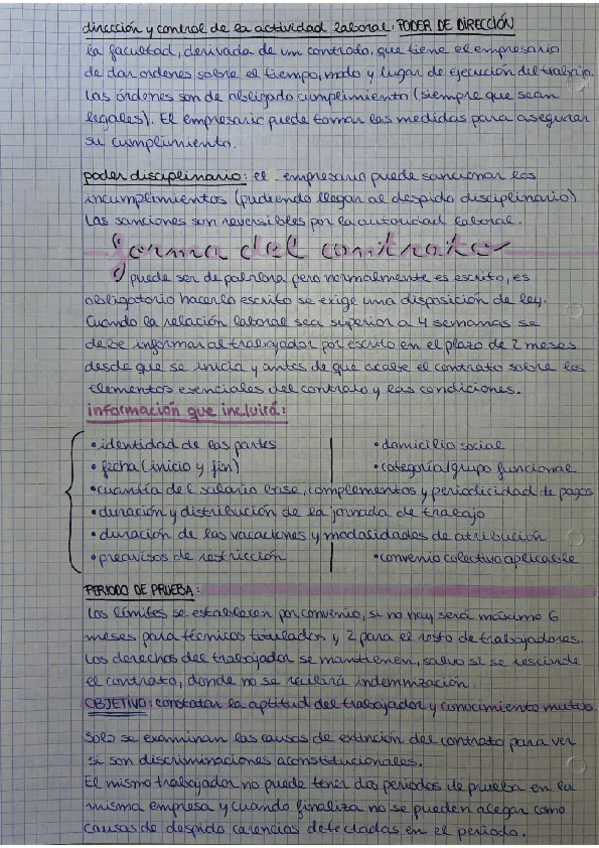 dirección y control de la actividad laboral. PODER DE DIRECCIÓN
la facultad, derivada de un contrato, que tiene el empresario
de dar ordenes sobre el tiempo, modo y lugar de ejecución del trabajo.
Las órdenes son de obligado cumplimiento (siempre que sean
legales). El empresario puede tomar las medidas para asegurar
su cumplimiento.
poder disciplinario: el empresario puede sancionar los
incumplimientos (pudiendo llegar al despido disciplinario)
Las sanciones son reversibles por la autoridad laboral.
forma del contrato
puede ser de palabra pero normalmente es escrito, es
obligatorio hacerlo escrito se exige una disposición de ley.
Cuando la relación laboral sea superior a 4 semanas se
debe informar al trabajador por escrito en el plazo de 2 meses
desde que se inicia y antes de que acabe el contrato sobre los
elementos esenciales del contrato y las condiciones.
información que incluirá:
• identidad de las partes • domicilio social
• fecha (inicio y fin) • categoría/grupo funcional
• cuantía del salario base, complementos y periodicidad de pagos
• duración y distribución de la jornada de trabajo
• duración de las vacaciones y modalidades de atribución
• preavisos de restricción • convenio colectivo aplicable
PERIODO DE PRUEBA:
Los límites se establecen por convenio, si no hay será máximo 6
meses para técnicos titulados y 2 para el resto de trabajadores.
Los derechos del trabajador se mantienen, salvo si se rescinde
el contrato, donde no se recibirá indemnización.
OBJETIVO: constatar la aptitud del trabajador y conocimiento mutuo.
Solo se examinan las causas de extinción del contrato para ver
si son discriminaciones aconstitucionales.
El mismo trabajador no puede tener dos periodos de prueba en la
misma empresa y cuando finaliza no se pueden alegar como
causas de despido carencias detectadas en el periodo.